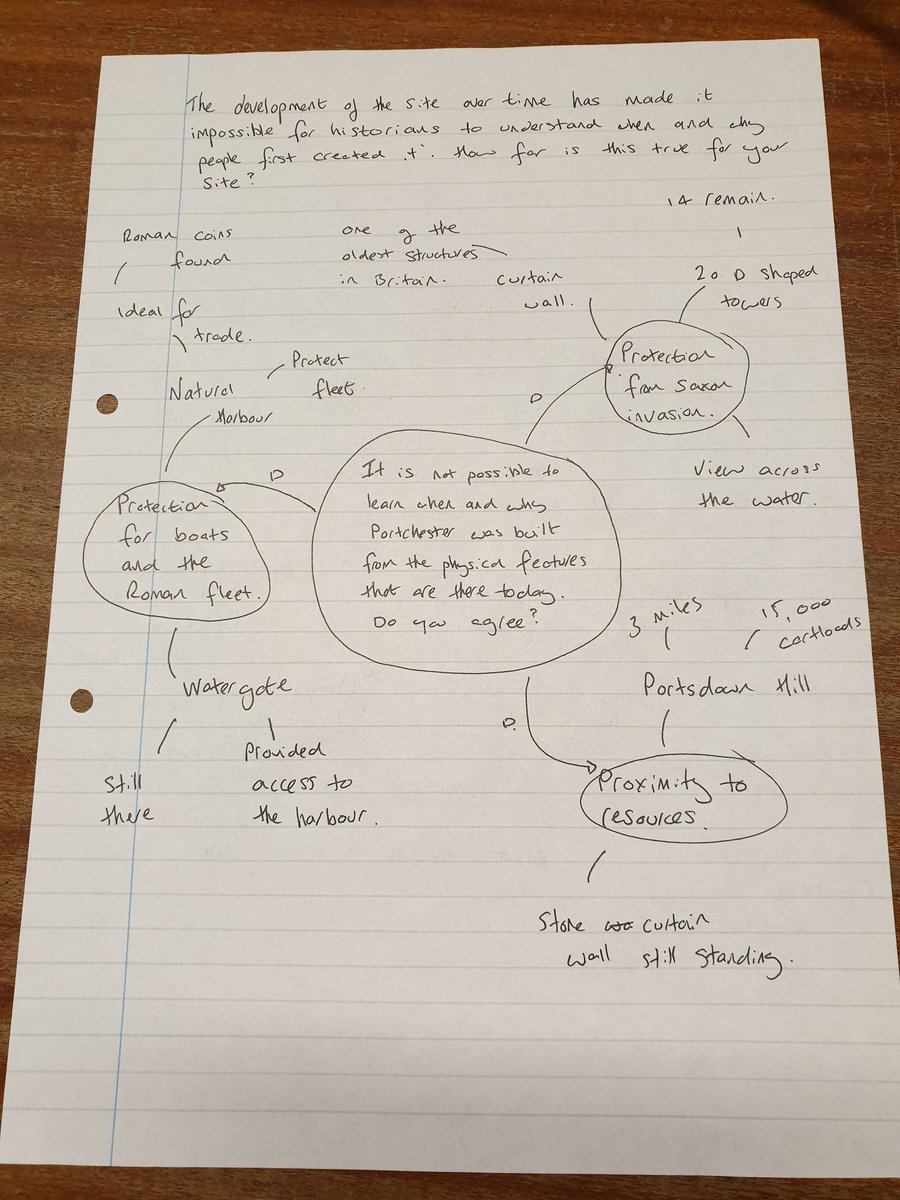 The development of the site over time has made it
impossible for historians to understand when and why
people first created it'. How far is this true for your
site?
14 remain.
20 D shaped
towers
Roman coins
found
one of the
oldest structures
in Britain.
curtain
wall.
Ideal for
trade.
Protection
from Saxon
invasion.
Natural
Harbour
Protect
fleet.
D
View across
the water.
D
Protection
for boats
and the
Roman fleet.
It is not possible to
learn when and why
Portchester was built
from the physical features
that are there today.
Do you agree?
3 miles
15,000
cartloads
Portsdown Hill
Watergate
Still
there
Provided
access to
the harbour.
D.
Proximity to
resources.
Stone curtain
wall still standing.